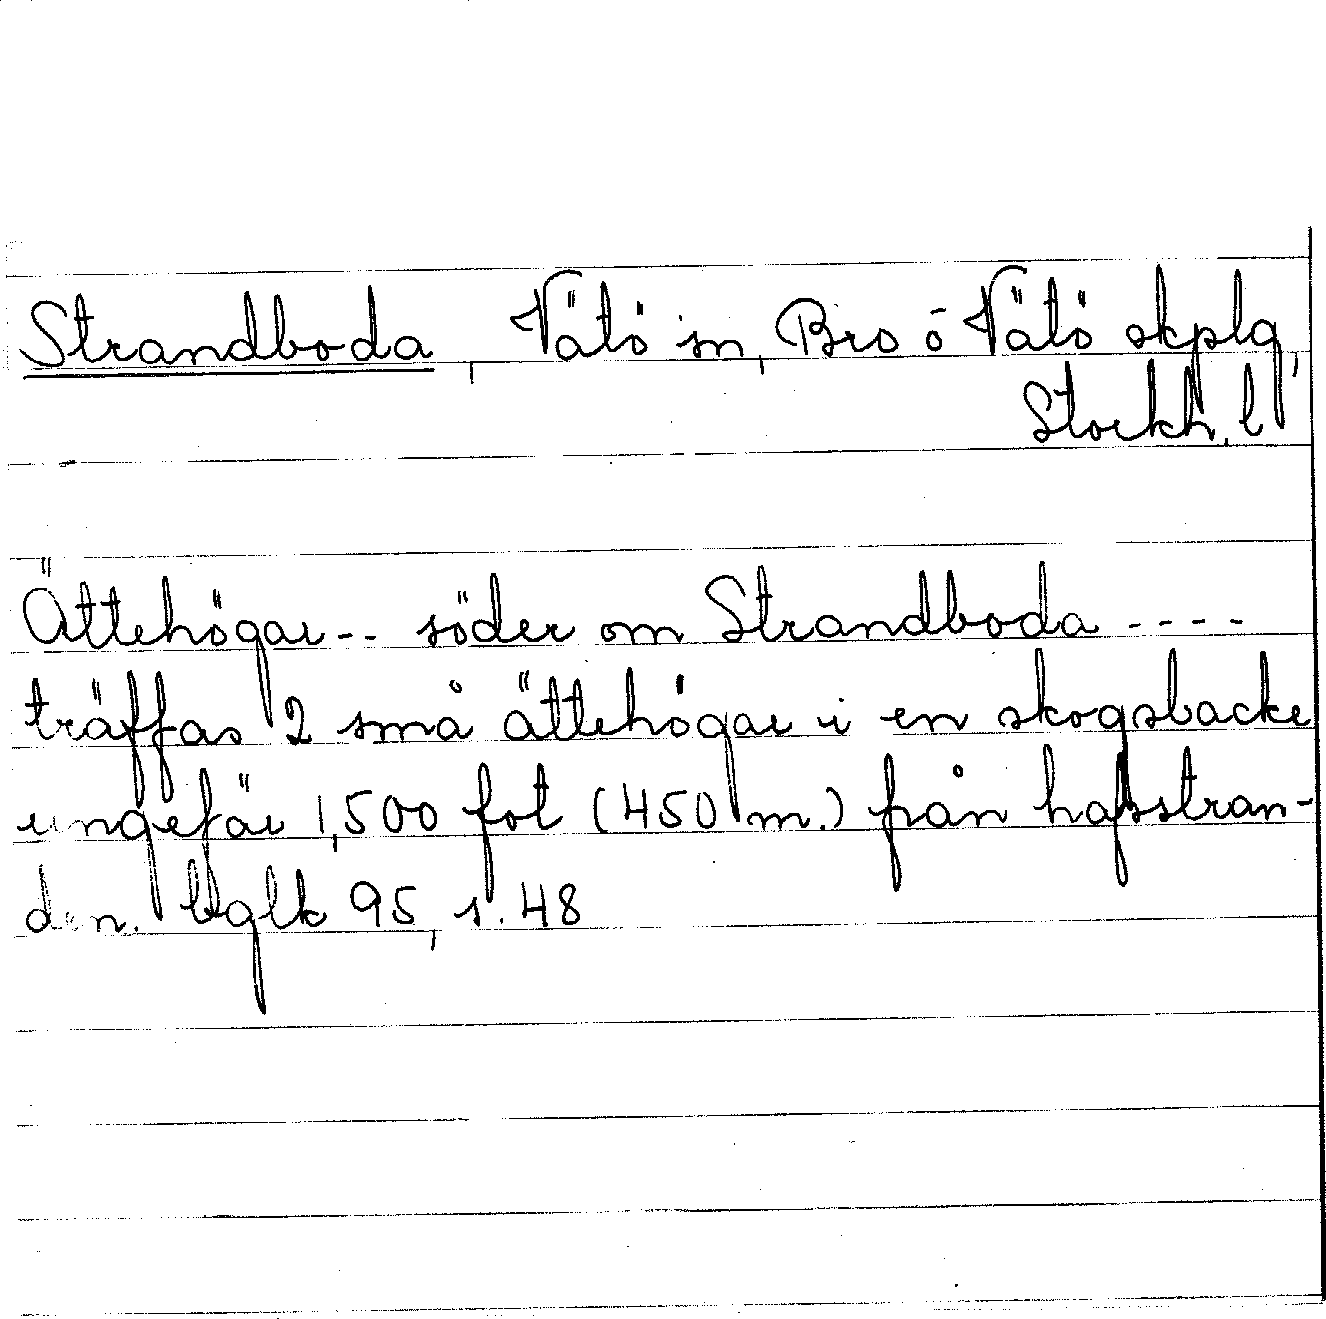 Strandboda, Vätö sn, Bro ō Vätö skplg,
Stockh. l
Ättehögar -- söder om Strandboda ----
träffas 2 små ättehögar i en skogsbacke
ungefär 1,500 fot (450 m.) från hafsstran-
den. bglk 95, s. 48